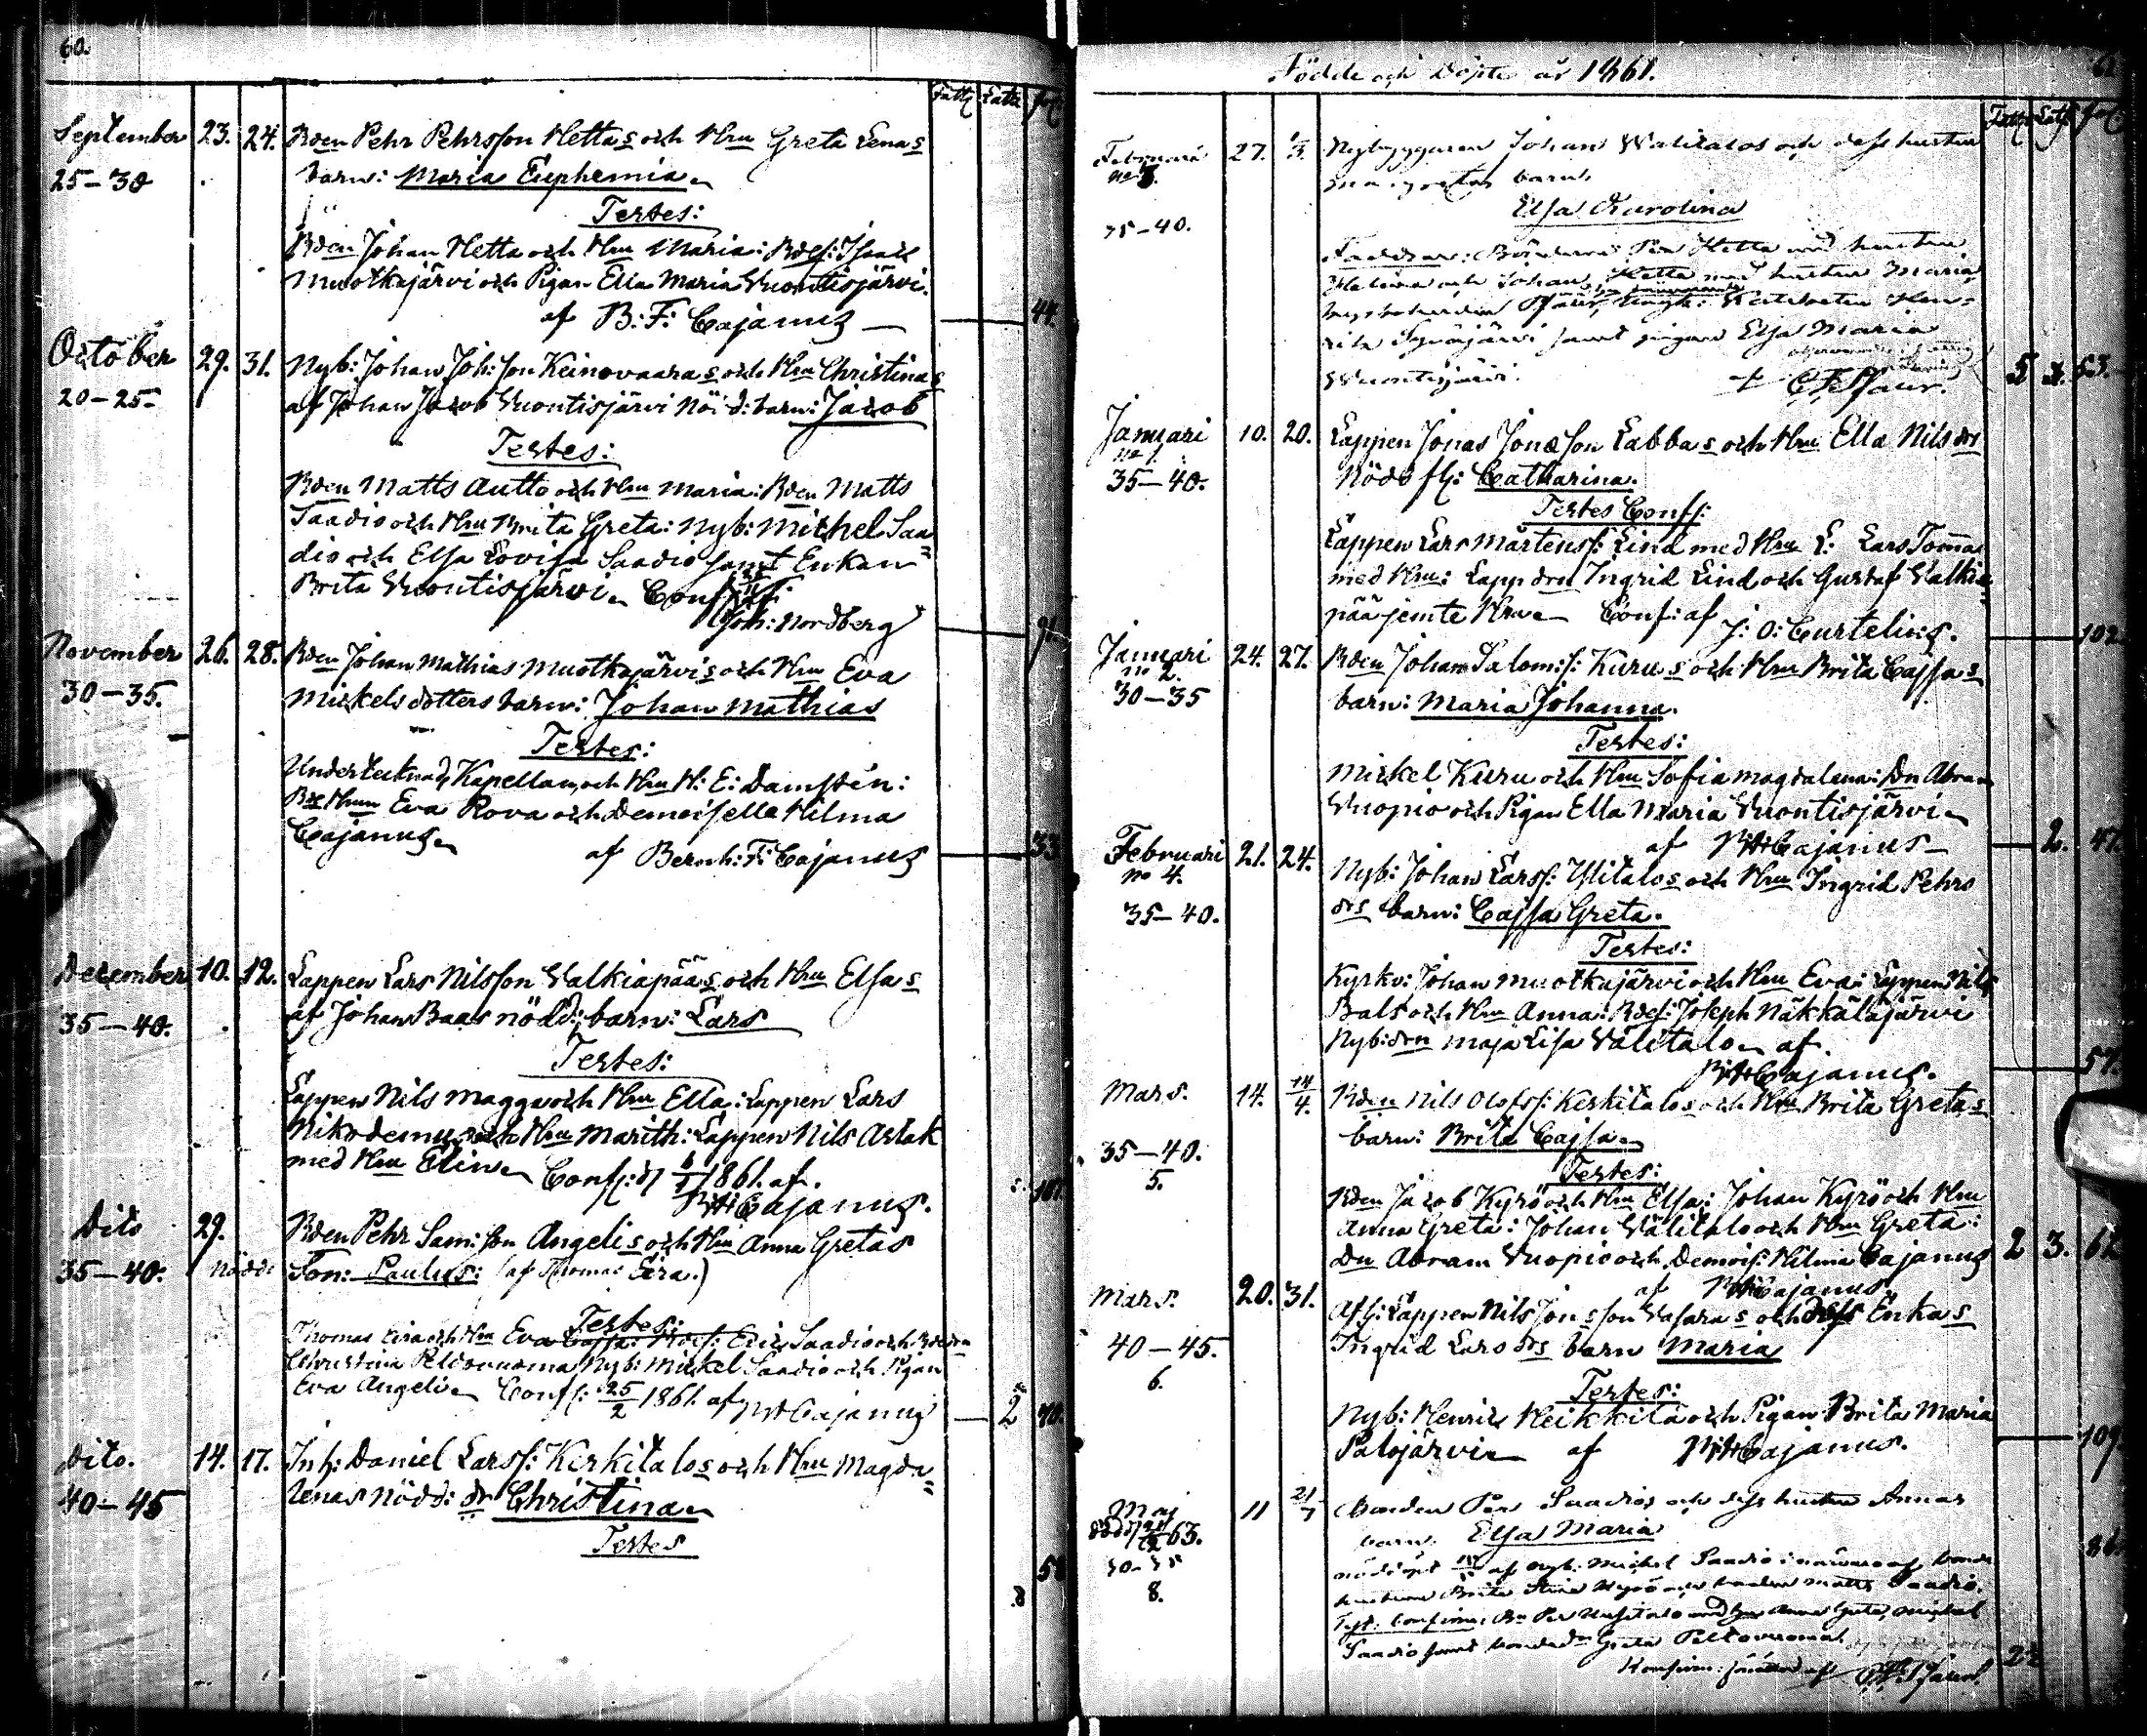 60.
Fattg Latta pag
September 23. 24. Bden Pehr Pehrsson Hettas och Hru Greta Lenas
25-30 barn: Maria Euphemia
Testes:
Bden Johan Hetta och Hru Maria: Bdes: Isaac
Muotkajärvi och Pigan Ella Maria Vuontisjärvi.
af B: F: Cajanus 44.
October 29. 31. Nyb: Johan Joh: son Keinovaaras och Hru Christinas
20-25. af Johan Jacob Vuontisjärvi Nöd: barn: Jacob
Testes:
Bden Matts Autto och Hru Maria: Bden Matts
Saadio och Hru Brita Greta: Nyb: Michel Saa=
dio och Elsa Lovisa Saadio samt Enkan
Brita Vuontisjärvi. Conf: af
Joh: Nordberg 91.
November 26. 28. Bden Johan Mathias Muotkajärvis och Hru Eva
30-35. Mickelsdotters barn: Johan Mathias
Testes:
Undertecknad, Kapellan, och Hru H: E: Damstén:
Hrun Eva Rova och Demoiselle Hilma
Cajanus. af Bernh: F: Cajanus 33
December 10. 12. Lappen Lars Nilsson Valkiapääs och Hru Elsas
35-40. af Johan Baas nödd: barn: Lars
Testes:
Lappen Nils Magga och Hru Ella: Lappen Lars
Nikodemus och Hru Marith: Lappen Nils Aslak
med Hru Elin. Conf: d 1861. af.
Cajanus. 101.
Dito 29. Bden Pehr Sam: son Angelis och Hru Anna Gretas
35-40: nödd: Son: Paulus: (af Thomas Eira.)
Testes:
Thomas Eira och Hru Eva Cajsa: Bdes: Eric Saadio och
Christina Peldovuoma Nyb: Mickel Saadio och Pigan
Eva Angeli. Conf: 25/2 1861. af Cajanus 2 40.
Dito. 14. 17. Inh: Daniel Larss: Kerkitalos och Hru Magda=
40-45 lenas Nödd: dr Christina
Testes
58
8
Födde och Döpte år 1861. 61
Fattg Latt pag
Februari 27. 1/3. Nybyggaren Johan Walitalos och dess hustru
no 3. Margretas barn.
Elsa Karolina
35-40. Faddrar: Bönderna Per Hetta med hustru
Helena och Johan Hetta med hustru Maria
Elsa Maria
Wuontisjärvi. 5 53.
Januari 10. 20. Lappen Jonas Jonsson Labbas och Hru Ella Nils drs
no 1. Nödd fl: Catharina.
35-40. Testes Conf:
Lappen Lars Mårtenss: Lind med Hru L: Lars Tomma
med Hru: Lapp drn Ingrid Lind och Gustaf Valkia=
pää jemte Hru. Conf: af J: O: Curtelius. 102
Januari 24. 27. Bden Johan Salom: s: Kurus och Hru Brita Cajsas
no 2. barn: Maria Johanna.
30-35 Testes:
Mickel Kuru och Hru Sofia Magdalena: Dn Abram
Vuopio och Pigan Ella Maria Vuontisjärvi
af Cajanus 2. 47.
Februari 21. 24. Nyb: Johan Larss: Ylitalos och Hru Ingrid Pehrs
no 4. drs barn: Cajsa Greta.
35-40. Testes:
Kyrkv: Johan Muotkajärvi och Hru Eva: Lappen Nils
Bals och Hru Anna: Bdes: Joseph Näkkäläjärvi
Nyb: drn Maja Lisa Välitalo. af.
Cajanus. 57.
Mars. 14. 14/4. Bden Nils Olofss: Kerkitalos och Hru Brita Gretas
35-40. barn: Brita Cajsa
5. Testes:
Bden Jacob Kyrö och Hru Elsa: Johan Kyrö och Hru
Anna Greta: Johan Välitalo och Hru Greta:
Dn Abram Vuopio och Demois: Hilma Cajanus 2 3. 62
af Cajanus
Mars. 20. 31. Afl: Lappen Nils Jonsson Vasaras och dess Enkas
40-45. Ingrid Lars drs barn Maria
6. Testes:
Nyb: Henric Heikkilä och Pigan Brita Maria
Palojärvi af Cajanus. 109
Maj 11 21/7 Bonden Per Saadios och dess hustru Annas
död 63. barn. Elsa Maria 86.
30-35 nöddöpt af nyb: Mickel Saadio i närvaro af bonde
8. hustrun Brita Stina Kyrö och bonden Matts Saadio.
Anna Greta, Mickel
Saadio samt Greta Peltovuoma.
22